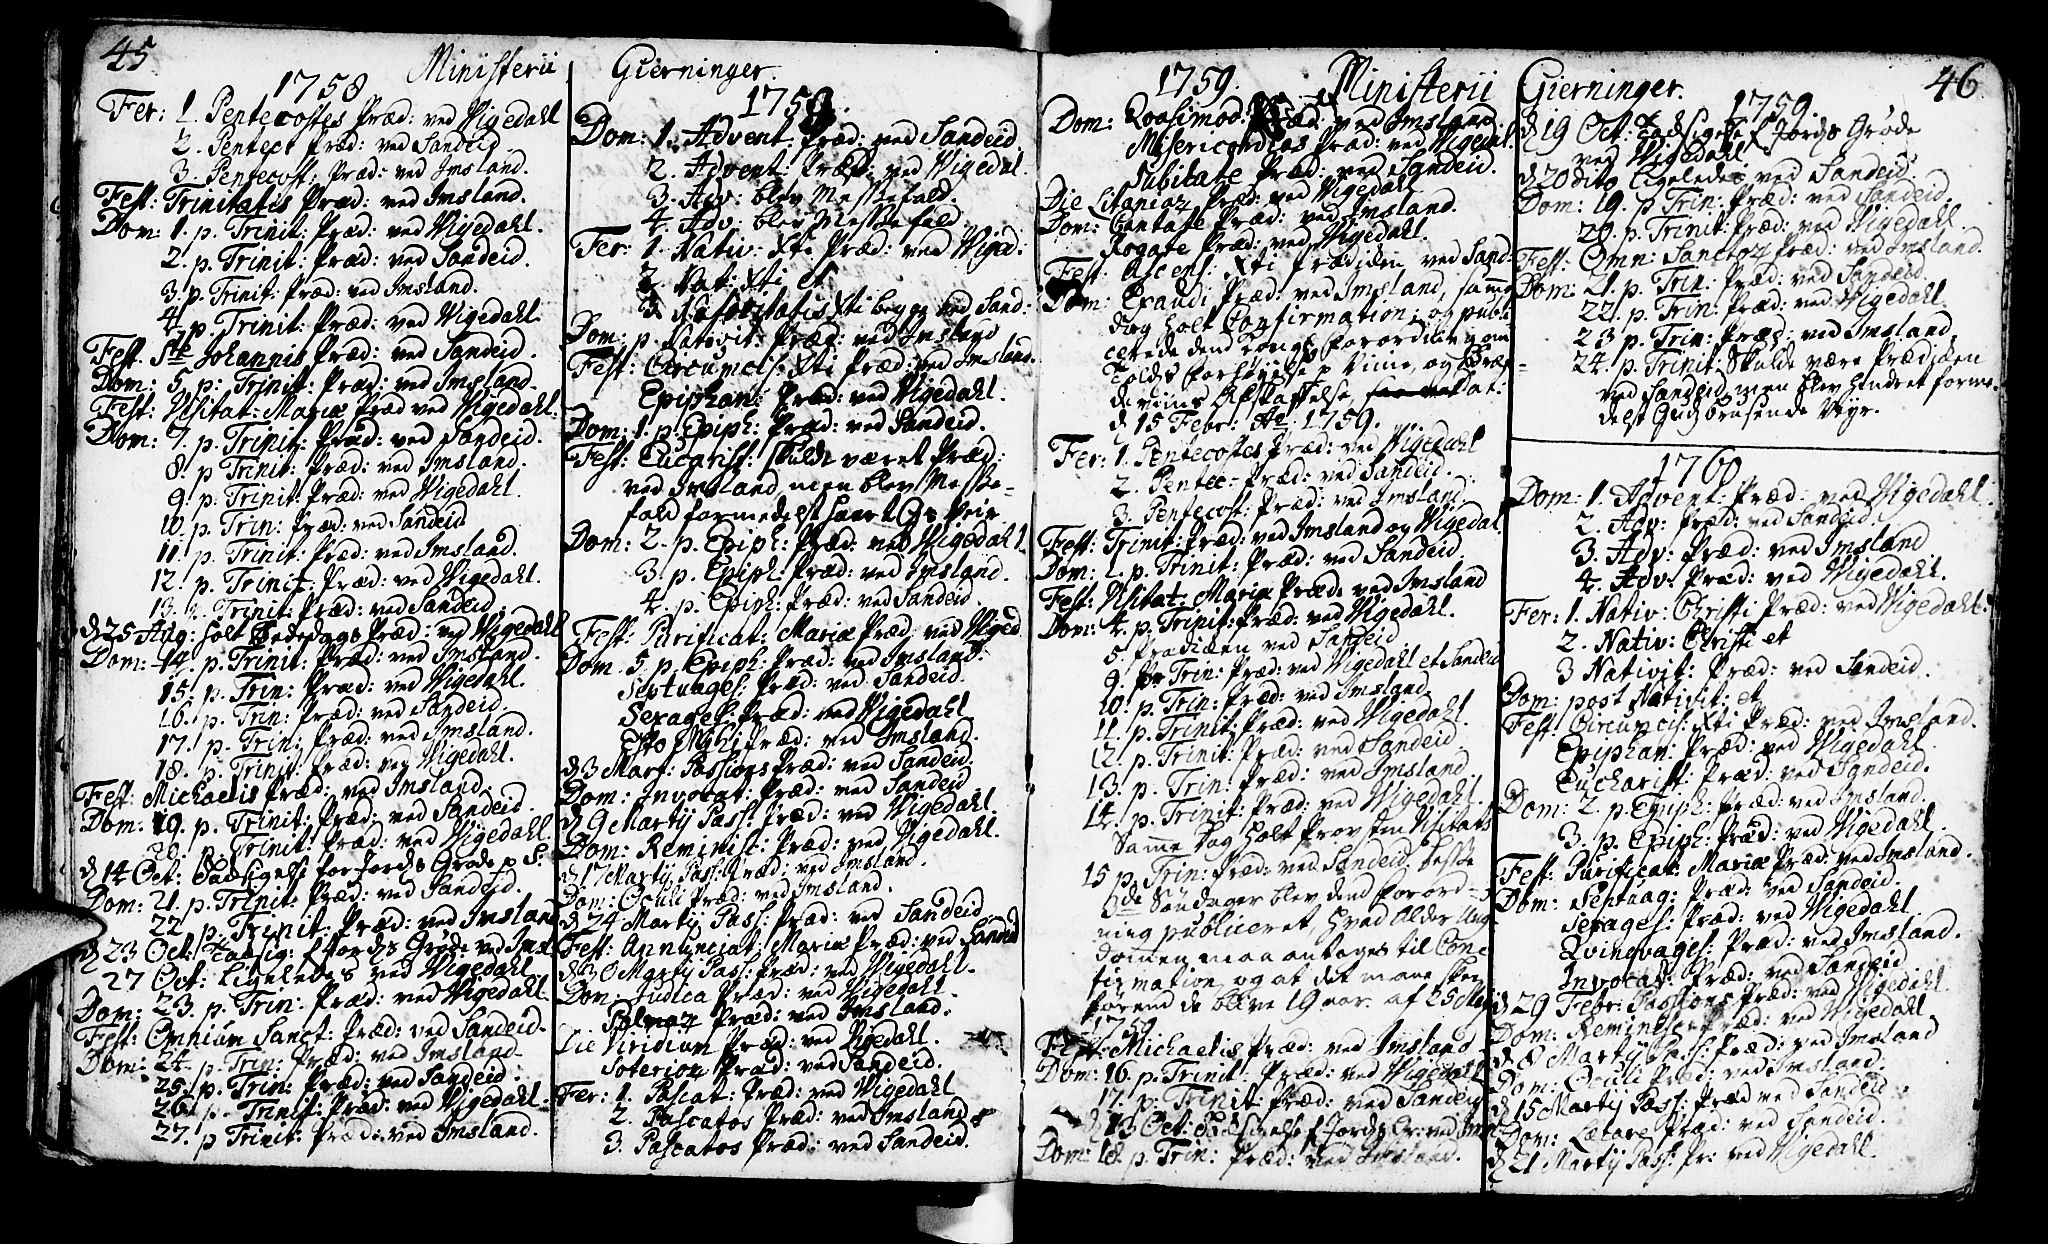 45
Ministerii Gierninger.
1758
Fer: 1. Pentecostes Præd: ved Vigedahl
2. Pentecst Præd: ved Sandeid
3. Pentecost: Præd: ved Imsland.
Fest: Trinitatis Præd: ved Imsland.
Dom: 1. p. Trinit: Præd: ved Vigedahl.
2. p. Trinit: Præd: ved Sandeid.
3. p. Trinit: Præd: ved Imsland.
4. p. Trinit: Præd: ved Vigedahl.
Fest: Ste Johannis Præd: ved Sandeid.
Dom: 5. p: Trinit: Præd: ved Imsland.
Fest: Visitat: Mariæ Præd ved Vigedahl.
Dom: 7. p. Trinit: Præd: ved Sandeid.
8. p Trinit: Præd: ved Imsland.
9. p. Trinit: Præd: ved Vigedahl.
10. p. Trin: Præd: ved Sandeid
11. p. Trinit: Præd: ved Imsland.
12. p. Trinit: Præd: ved Vigedahl.
13. p. Trinit: Præd: ved Sandeid.
d 25 Aug: holt Bededags Præd: ved Vigedahl
Dom: 14. p. Trinit: Præd: ved Imsland.
15. p. Trin: Præd: ved Vigedahl.
16. p. Trin: Præd: ved Sandeid.
17. p. Trin: Præd: ved Imsland.
18. p. Trinit: Præd: ved Vigedahl.
Fest: Michaelis Præd: ved Imsland.
Dom: 19. p. Trinit: Præd: ved Sandeid.
20. p. Trinit: Præd: ved Vigedahl.
d 14 Oct: Tacksigelse for Jords Grøde p S:
Dom: 21. p. Trinit: Præd: ved Sandeid.
22. p. Trinit: Præd: ved Imsland
d 23 Oct: Tacksig: f Jords Grøde ved Imsl
27 Oct: Ligeledes ved Vigedahl.
Dom: 23. p. Trin: Præd: ved Vigedahl.
Fest: Omnium Sanct: Præd: ved Sandeid.
Dom: 24. p. Trin: Præd: ved Imsland.
25. p. Trin: Præd: ved Sandeid.
26. p. Trinit: Præd: ved Vigedahl.
27. p Trinit: Præd: ved Imsland.
1759.
Dom: 1. Advent: Præd: ved Sandeid.
2. Advent: Præd: ved Vigedal.
3. Adv: blev Messefald.
4. Adv: blev Messefald.
Fer: 1. Nativ: Xti Præd: ved Viged:
2. Nat: Xti et
3 Nativitatis Xti begge ved Sand:
Dom: p. Nativit: Præd: ved Imsland
Fest: Circumcis: Xti Præd: ved Imsland.
Epiphan: Præd: ved Vigedahl.
Dom: 1. p. Epiph: Præd: ved Sandeid.
Fest: Eucarist: skulde været Præd:
ved Imsland, men blev Messe-
fald formedelst haart Veir
Dom: 2. p. Epiph: Præd: ved Vigedahl.
3. p. Epiph: Præd: ved Imsland.
4. p. Epiph: Præd: ved Sandeid.
Fest: Purificat: Mariæ Præd: ved Viged
Dom. 5. p. Epiph: Præd: ved Imsland.
Septuages: Præd: ved Sandeid.
Sexages: Præd: ved Vigedahl
Esto Mihi Præd: ved Imsland.
d 3 Mart: Passions Præd: ved Sandeid.
Dom: Invocat: Præd: ved Sandeid
d 9 Martij Pass: Præd: ved Vigedahl.
Dom: Reminisc: Præd: ved Vigedahl.
d 17 Martij Pass: Præd: ved Imsland.
Dom: Oculi Præd: ved Imsland.
d 24 Martij Pass: Præd: ved Sandeid
Fest: Annunciat: Mariæ Præd: ved Sandeid
d 30 Martij Pass: Præd: ved Vigedahl.
Dom: Judica Præd: ved Vigedahl.
Palmar Præd: ved Imsland.
Die Viridium Præd: ved Vigedahl.
Soterion Præd: ved Sandeid.
Fer: 1. Pascat: Præd: ved Vigedahl
2. Pascatos Præd: ved Imsland
3. Pascatos Præd: ved Sandeid.
46.
1759. Ministerii Gierninger.
Dom: Qvasimod: Præd: ved Imsland.
Misericordias Præd: ved Vigedal.
Jubilate Præd: ved Sandeid.
Die Litaniar Præd: ved Vigedahl
Dom: Cantate Præd: ved Imsland.
Rogate Præd: ved Vigedahl.
Fest: Ascens: Xti Prædiken ved Sand-
Dom: Exaudi Præd: ved Imsland, samme
dag holt Confirmation; og publi
cerede dend Kongl: Forordning om
Tolds Forhøyelse p Viine, og Bræn
deviins Afskaffelse, dat:
d 15 Febr: Ao 1759.
Fer: 1. Pentecostes Præd: ved Vigedahl
2. Pentec: Præd: ved Sandeid.
3. Pentecost: Præd: ved Imsland.
Fest: Trinit: Præd: ved Imsland og Vigedal
Dom: 1. p. Trinit: Præd: ved Sandeid.
Fest: Visitat: Mariæ Præd: ved Imsland
Dom: 4. p. Trinit: Præd: ved Vigedahl.
5 Prædiken ved Sandeid
9. p Trin: Præd: ved Vigedahl et Sandeid
10. p. Trin: Præd: ved Imsland
11. p. Trinit: Præd: ved Vigedahl.
12. p. Trinit: Præd: ved Sandeid.
13. p. Trin: Præd: ved Imsland.
14. p. Trinit: Præd: ved Vigedahl.
Samme Dag holt Provsten Visitats
15 p. Trin: Præd: ved Sandeid. Disse
3de Søndager blev dend Forord-
ning publiceret, hvad Alder Ung
dommen maa antages til Conf
firmation, og at det maae skee
førend de blive 19 aar. af 25 Maij
1759.
Fest: Michaelis Præd: ved Imsland
Dom: 16. p. Trinit. Præd: ved Vigedahl
17. p. Trinit: Præd: ved Sandeid
d 13 Oct: Tacksigelse f Jords Gr: ved Imsl
Dom: 18. p. Trin: Præd: ved Imsland.
1759.
d 19 Oct: Tacksigelse f Jords Grøde
ved Vigedahl.
d 20 dito ligeledes ved Sandeid.
Dom: 19. p Trin: Præd: ved Sandeid.
20. p. Trinit: Præd: ved Vigedahl.
Fest: Omn: Sanctor Præd: ved Imsland.
Dom: 21. p. Trin: Præd: ved Sandeid.
22. p. Trin: Præd: ved Vigedahl.
23 p. Trin: Præd: ved Imsland
24. p. Trinit: Skulde være Prædiken
ved Sandeid, men blev hindret forme-
delst Guds brusende Veyr.
1760
Dom: 1. Advent: Præd: ved Vigedahl.
2. Adv: Præd: ved Sandeid.
3. Adv: Præd: ved Imsland
4. Adv: Præd: ved Vigedahl.
Fer: 1. Nativ: Christi Præd: ved Vigedahl.
2. Nativ: Christi et
3 Nativit: Præd: ved Sandeid.
Dom: post Nativit: et
Fest: Circumcis: Xti Præd: ved Imsland.
Epiphan: Præd: ved Vigedahl.
Eucharist: Præd: ved Sandeid.
Dom: 2 p. Epiph: Præd: ved Imsland.
3. p. Epiph: Præd: ved Vigedahl.
Fest: Purificat: Mariæ Præd: ved Imsland.
Dom: Septuag: Præd: ved Sandeid.
Sexages: Præd: ved Vigedahl.
Qvinqvages: Præd: ved Imsland.
Invocat: Præd: ved Sandeid
d 29 Febr: Passions Præd: ved Vigedahl.
Dom: Reminiscer Præd: ved Vigedahl
d 8 Martij Pass: Præd: ved Imsland
Dom: Oculi Præd: ved Imsland.
d 15 Martij Pass: Præd ved Sandeid
Dom: Lætare Præd: ved Sandeid.
d 21 Martij Pass: Pr: ved Vigedahl.